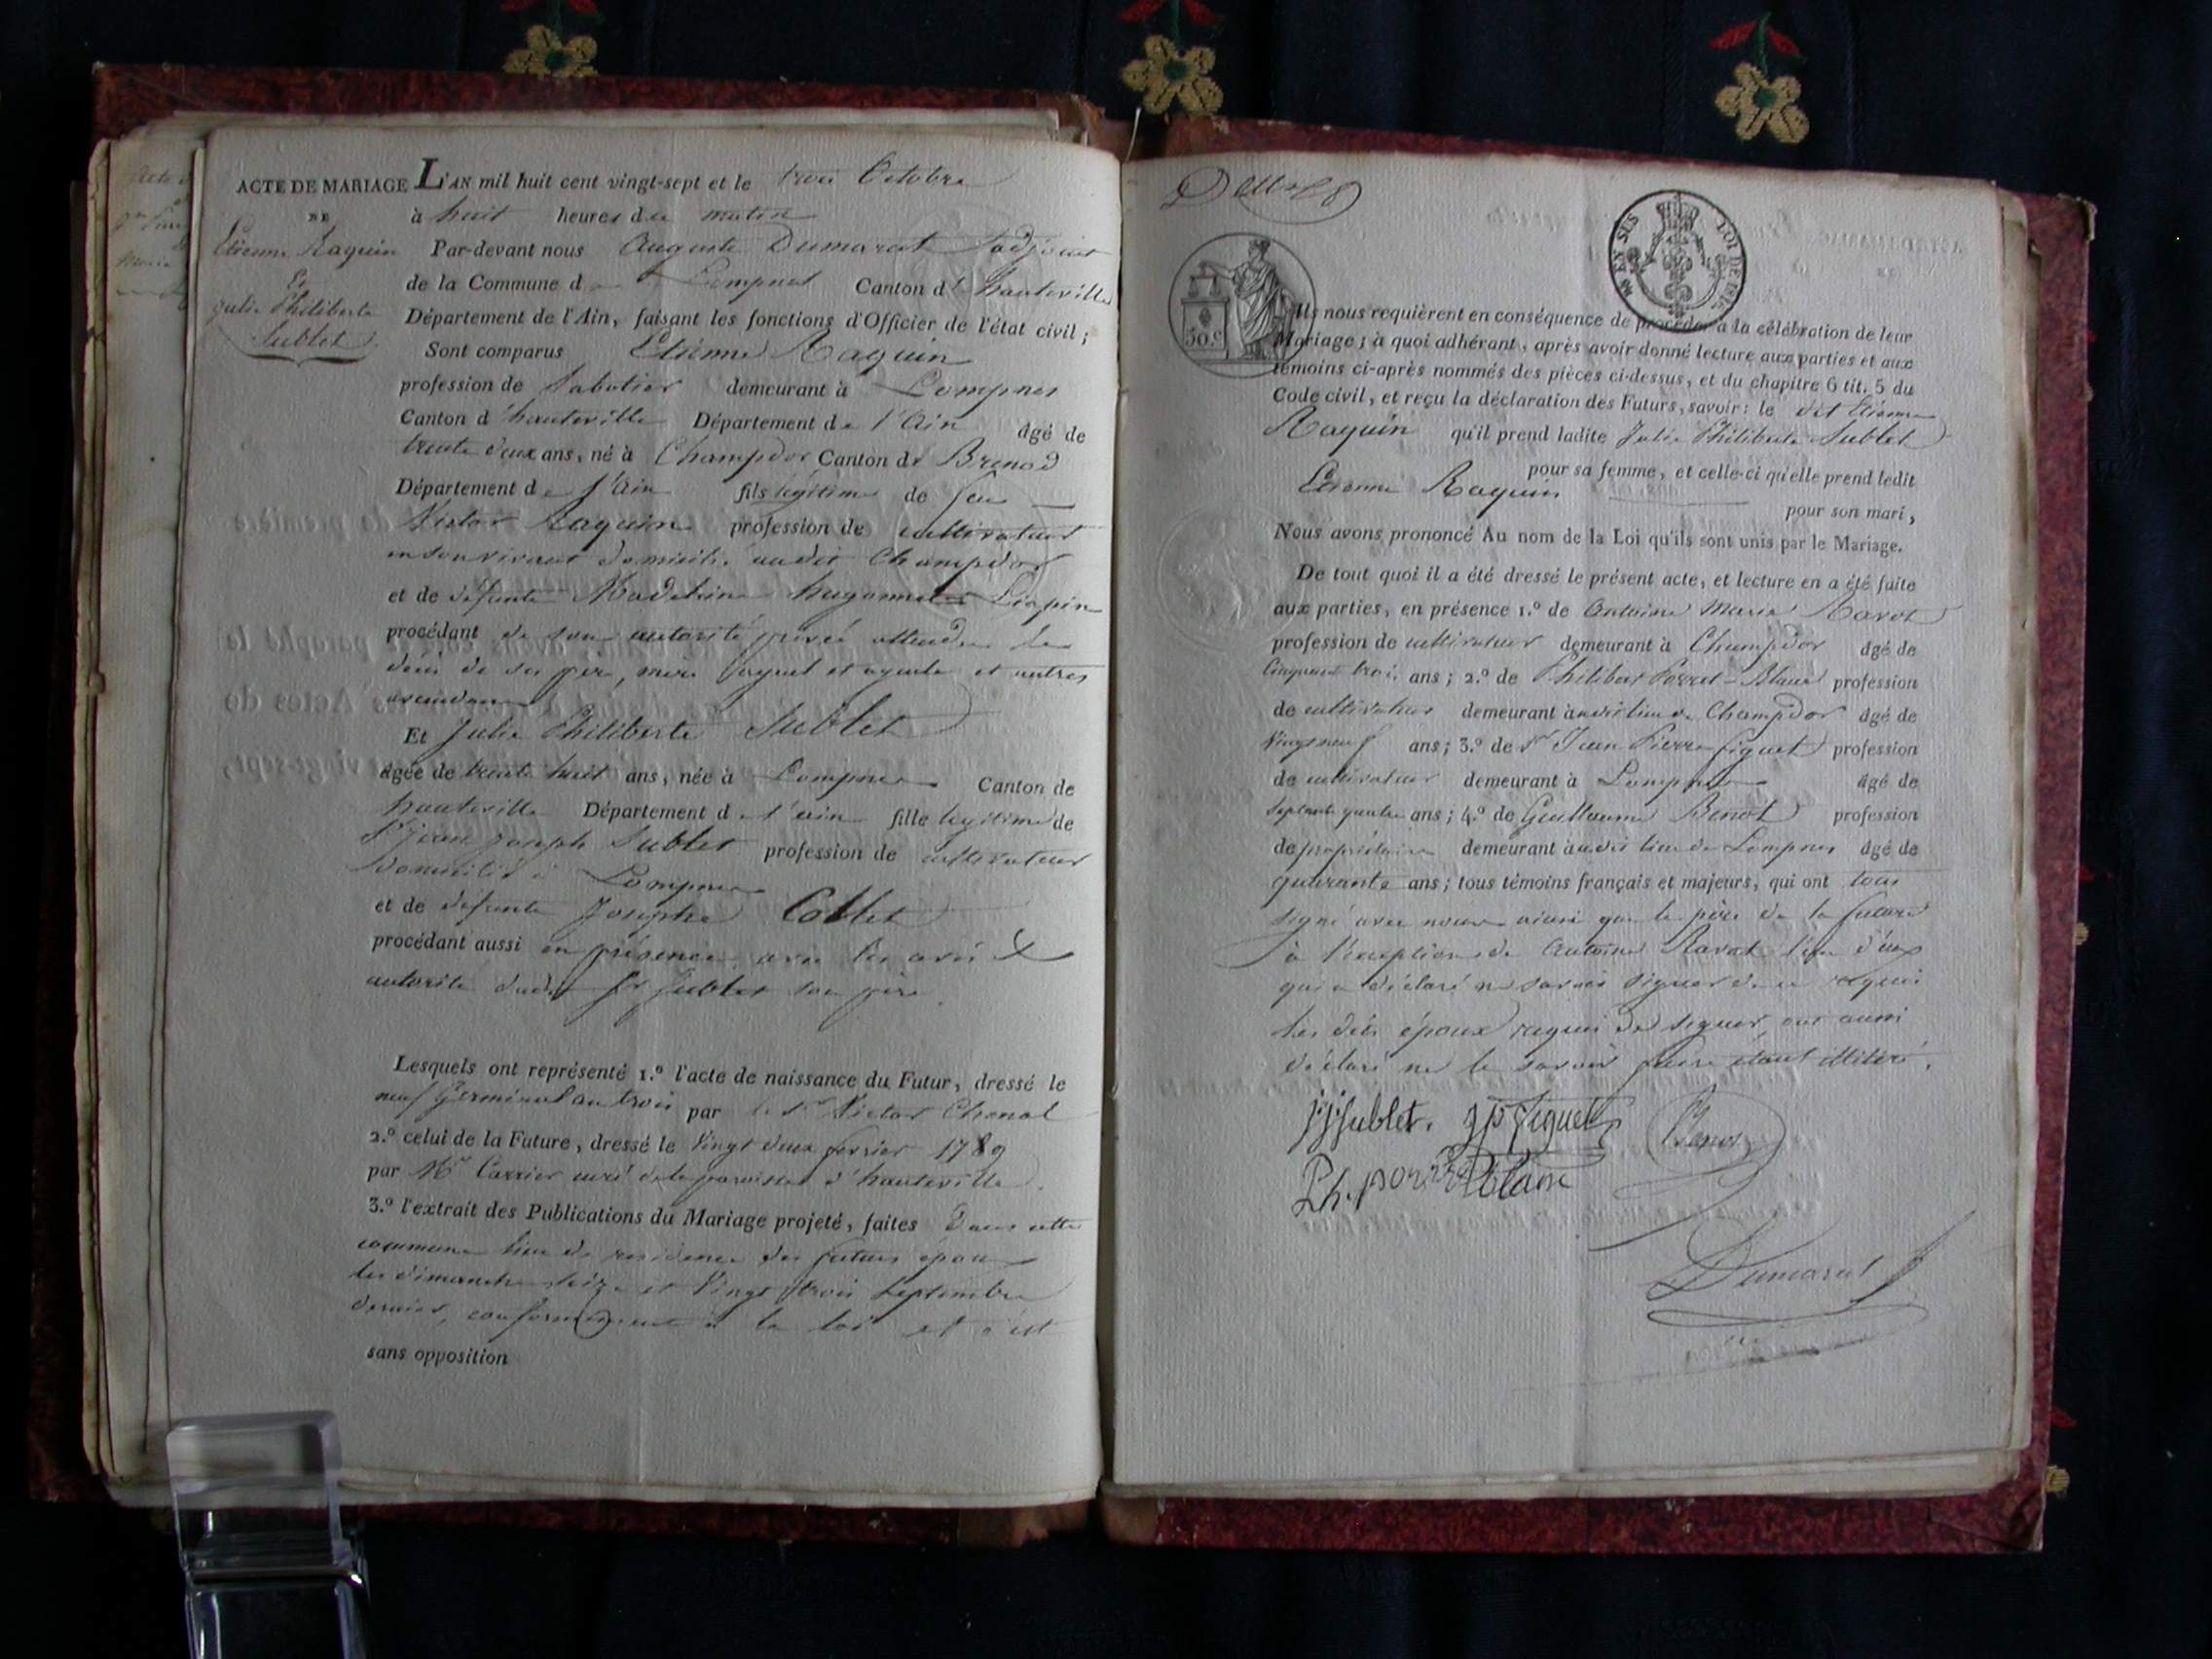 ACTE DE MARIAGE
DE
Etienne Raquin
Et
julie Philiberte
Sublet
L'AN mil huit cent vingt-sept et le trois Octobre
à huit heures du matin
Par-devant nous Auguste Dumarest L'adjoint
de la Commune de Lompnes Canton d'hauteville
Département de l'Ain, faisant les fonctions d'Officier de l'état civil;
Sont comparus Etienne Raquin
profession de Sabotier demeurant à Lompnes
Canton d'hauteville Département de l'Ain âgé de
trente deux ans, né à Champdor Canton de Brenod
Département de l'Ain fils légitime de feu
Victor Raquin profession de cultivateur
en son vivant domicilié audit Champdor
et de défunte Madelaine hugonnet Liapin
procédant de son autorité privée attendu le
deces de ses pere, mere et ayeule et autres
ascendans
Et Julie Philiberte Sublet
âgée de trente huit ans, née à Lompnes Canton de
hauteville Département de l'ain fille légitime de
Sr jean joseph Sublet profession de cultivateur
domicilié à Lompnes
et de défunte Josephe Collet
procédant aussi en présence, avec les avis &
autorité dudit Sr Sublet son père.
Lesquels ont représenté 1.º l'acte de naissance du Futur, dressé le
neuf Germinal an trois par le Sr Victor Chenal
2.º celui de la Future, dressé le Vingt deux février 1789
par Mr Carrier curé de la paroisse d'hauteville.
3.º l'extrait des Publications du Mariage projeté, faites dans cette
commune lieu de residence des futurs époux
les dimanche seize et Vingt trois Septembre
dernier, conformément à la loi et c'est
sans opposition
EN SUS LOI DE
50 C.
Ils nous requièrent en conséquence de procéder à la célébration de leur
Mariage; à quoi adhérant, après avoir donné lecture aux parties et aux
témoins ci-après nommés des pièces ci-dessus, et du chapitre 6 tit. 5 du
Code civil, et reçu la déclaration des Futurs, savoir: le dit Etienne
Raquin qu'il prend ladite Julie Philiberte Sublet
pour sa femme, et celle-ci qu'elle prend ledit
Etienne Raquin
pour son mari,
Nous avons prononcé Au nom de la Loi qu'ils sont unis par le Mariage.
De tout quoi il a été dressé le présent acte, et lecture en a été faite
aux parties, en présence 1.º de Antoine Marie Ravot
profession de cultivateur demeurant à Champdor âgé de
Cinquante trois ans; 2.º de Philibert Porret-Blanc profession
de cultivateur demeurant audit lieu de Champdor âgé de
Vingt neuf ans; 3.º de Sr Jean Pierre figuet profession
de cultivateur demeurant à Lompnes âgé de
Septante quatre ans; 4.º de Guillaume Benot profession
de propriétaire demeurant audit lieu de Lompnes âgé de
quarante ans; tous témoins français et majeurs, qui ont tous
signé avec nous ainsi que le père de la future
à l'exception de Antoine Ravot l'un d'eux
qui a déclaré ne savoir signer de ce requis
les dits époux requis de signer, ont aussi
déclaré ne le savoir faire étant illitéré.
jjsublet. jp figuet Benot
Ph. porret Blanc
Dumarest